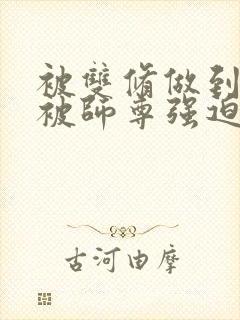 被雙脩做到
被師尊强迫
古河由摩